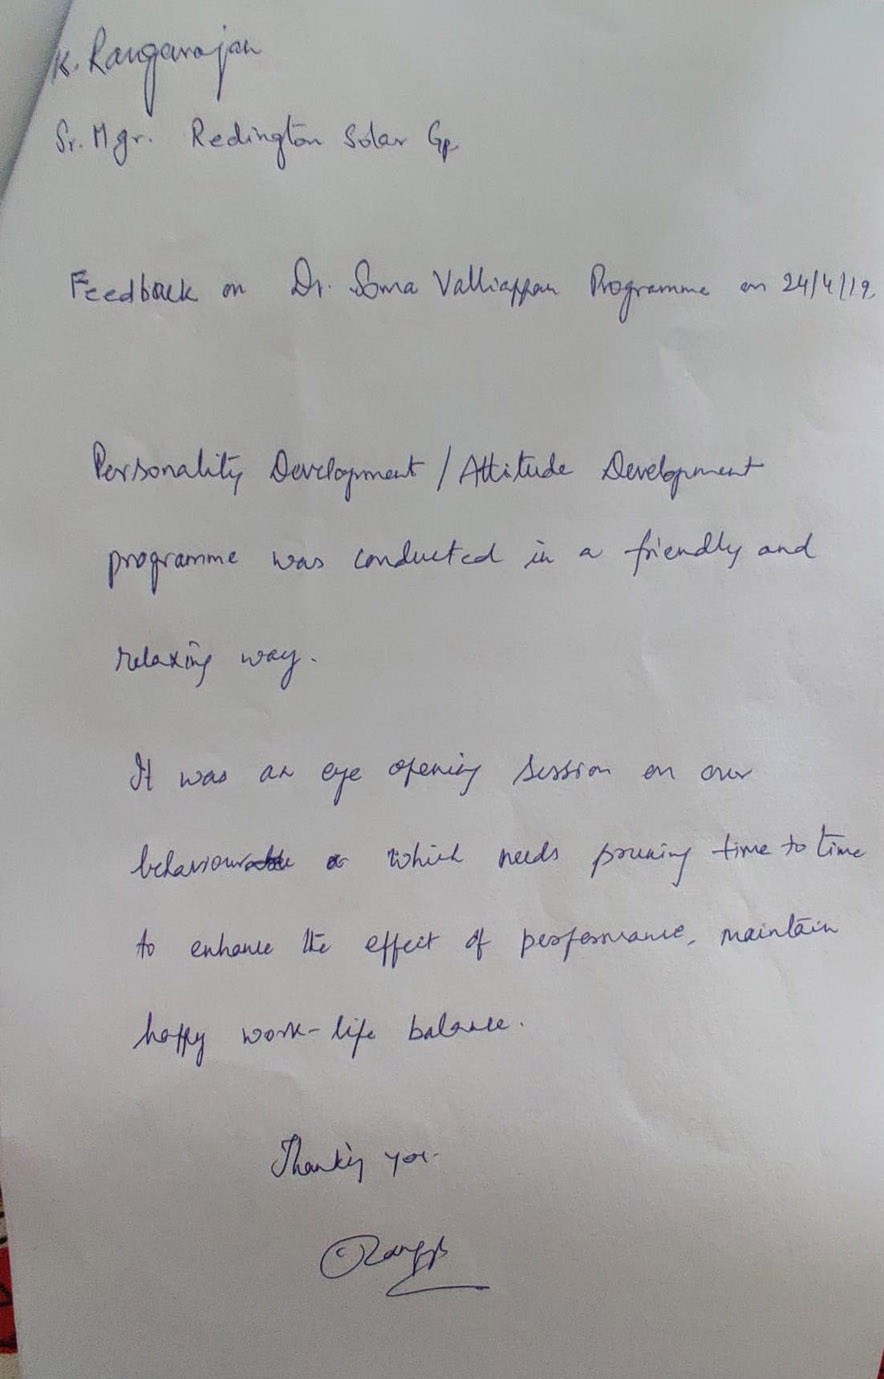 K. Rangarajan
Sr. Mgr. Redington Solar Gp.
Feedback on Dr. Soma Valliappan Programme on 24/4/19.
Personality Development / Attitude Development
programme was conducted in a friendly and
relaxing way.
It was an eye opening session on our
behaviour which needs pruning time to time
to enhance the effect of performance, maintain
happy work-life balance.
Thanking you.